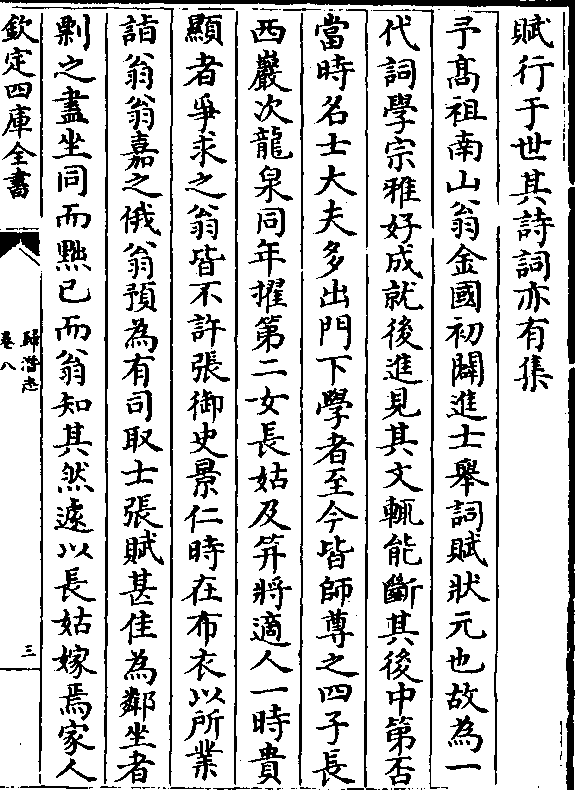 賦行于世其詩詞亦有集
予髙祖南山翁金國初闢進士舉詞賦狀元也故為一
代詞學宗雅好成就後進見其文輒能斷其後中第否
當時名士大夫多出門下學者至今皆師尊之四子長
西巖次龍泉同年擢第二女長姑及笄將適人一時貴
顯者爭求之翁皆不許張御史景仁時在布衣以所業
詣翁翁嘉之俄翁預為有司取士張賦甚佳為鄰坐者
剽之盡坐同而黜已而翁知其然遽以長姑嫁焉家人
欽定四庫全書
歸潛志
卷八
三